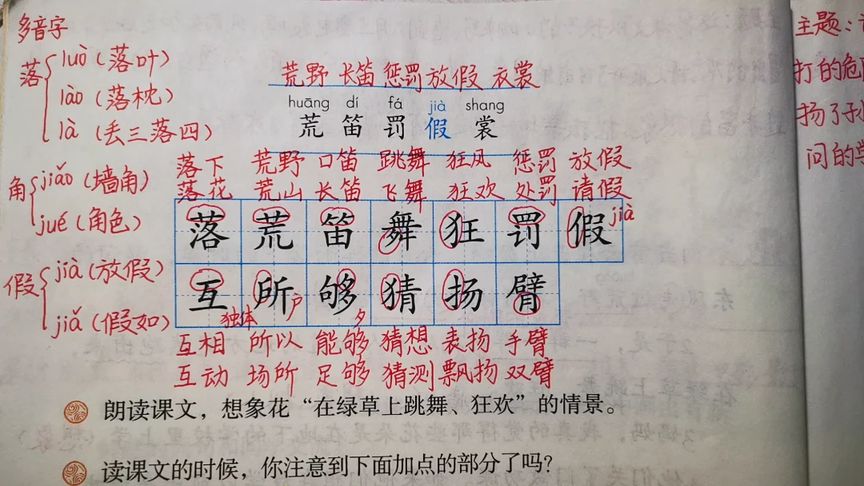 多音字
落 luò（落叶）
lào（落枕）
là（丢三落四）
角 jiǎo（墙角）
jué（角色）
假 jià（放假）
jiǎ（假如）
荒野 长笛 惩罚 放假 衣裳
huāng dí fá jià shang
荒 笛 罚 假 裳
落下 荒野 口笛 跳舞 狂风 惩罚 放假
落花 荒山 长笛 飞舞 狂欢 处罚 请假
落 荒 笛 舞 狂 罚 假 jià
互 所 够 猜 扬 臂
独体 户 夕
互相 所以 能够 猜想 表扬 手臂
互动 场所 足够 猜测 飘扬 双臂
朗读课文，想象花“在绿草上跳舞、狂欢”的情景。
读课文的时候，你注意到下面加点的部分了吗？
主题：
打的危
扬了孙
问的学